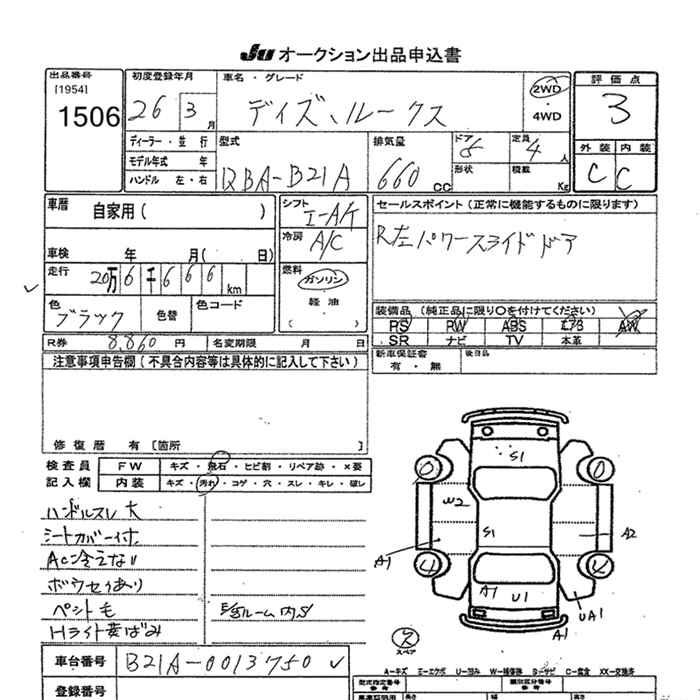 Ju オークション出品申込書
出品番号 初度登録年月 車名・グレード 評価点
[1954] 1506 26 3月 デイズ、ルークス 2WD ・ 4WD 3
ディーラー・並行 型式 排気量 ドア 定員 外装 内装
モデル年式 年 DBA-B21A 660 CC 5 4人 C C
ハンドル 左・右 形状 積載 Kg
車歴 自家用( ) シフト I-A/T セールスポイント(正常に機能するものに限ります)
冷房 A/C R左パワースライドドア
車検 年 月( 日)
走行 20万6千666km 燃料 ガソリン
軽油
( )
色 ブラック 色替 色コード 装備品(純正品に限り○を付けてください)
PS PW ABS エアB AW
R券 8,860 円 名変期限 月 日 SR ナビ TV 本革
注意事項申告欄(不具合内容等は具体的に記入して下さい) 新車保証書 後日品
有・無
修復歴 有[箇所 ]
検査員 FW キズ・飛石・ヒビ割・リペア跡・X要
記入欄 内装 キズ・汚れ・コゲ・穴・スレ・キレ・破レ
ハンドルスレ大
シートカバー付
ACに冷えない
ボウセイあり
ペット毛
Hライト黄ばみ
ルーム内S
S1
W2
S1
A1
A2
A1
U1
UA1
A1
スペア
車台番号 B21A-0013750
A=キズ E=エクボ U=凹み W=補修跡 S=サビ C=腐食 XX=交換済
登録番号